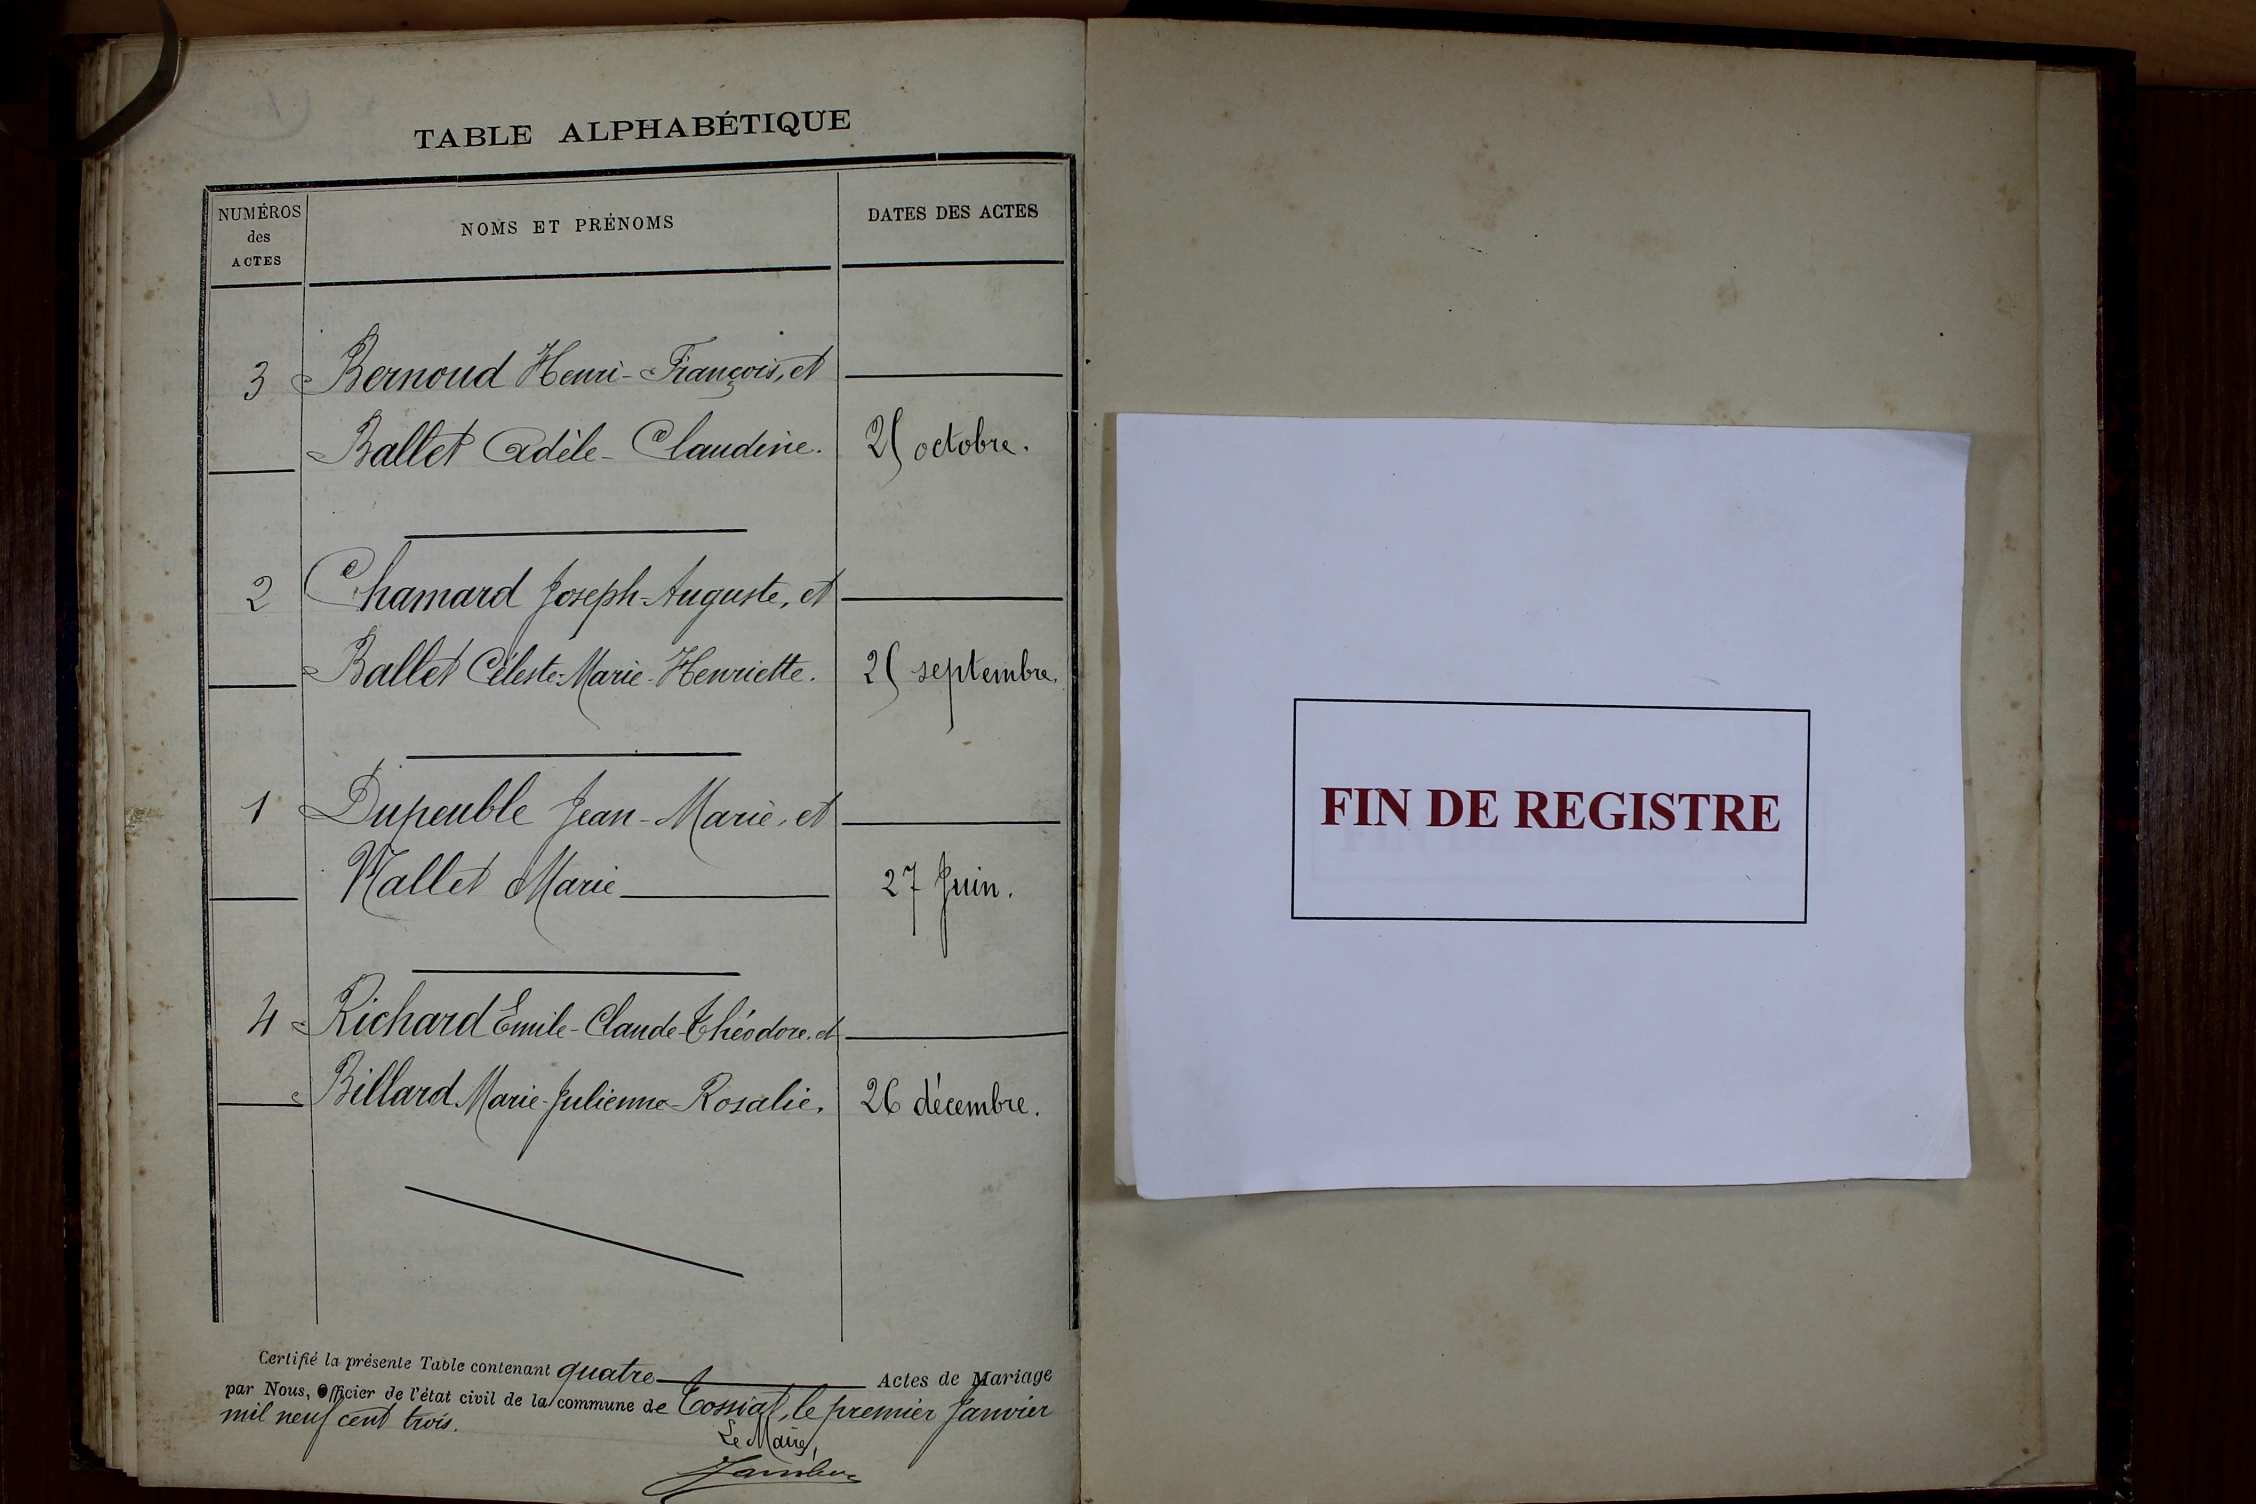 TABLE ALPHABÉTIQUE
NUMÉROS
des
ACTES
NOMS ET PRÉNOMS
DATES DES ACTES
3 Bernoud Henri-François, et
Ballet Adèle-Claudine. 25 octobre.
2 Chamard Joseph-Auguste, et
Ballet Céleste-Marie-Henriette. 25 septembre.
1 Dupeuble Jean-Marie, et
Mallet Marie 27 Juin.
4 Richard Emile-Claude-Théodore, et
Billard Marie-Julienne-Rosalie. 26 décembre.
Certifié la présente Table contenant quatre Actes de Mariage
par Nous, Officier de l'état civil de la commune de Tossiat, le premier Janvier
mil neuf cent trois.
Le Maire,
FIN DE REGISTRE